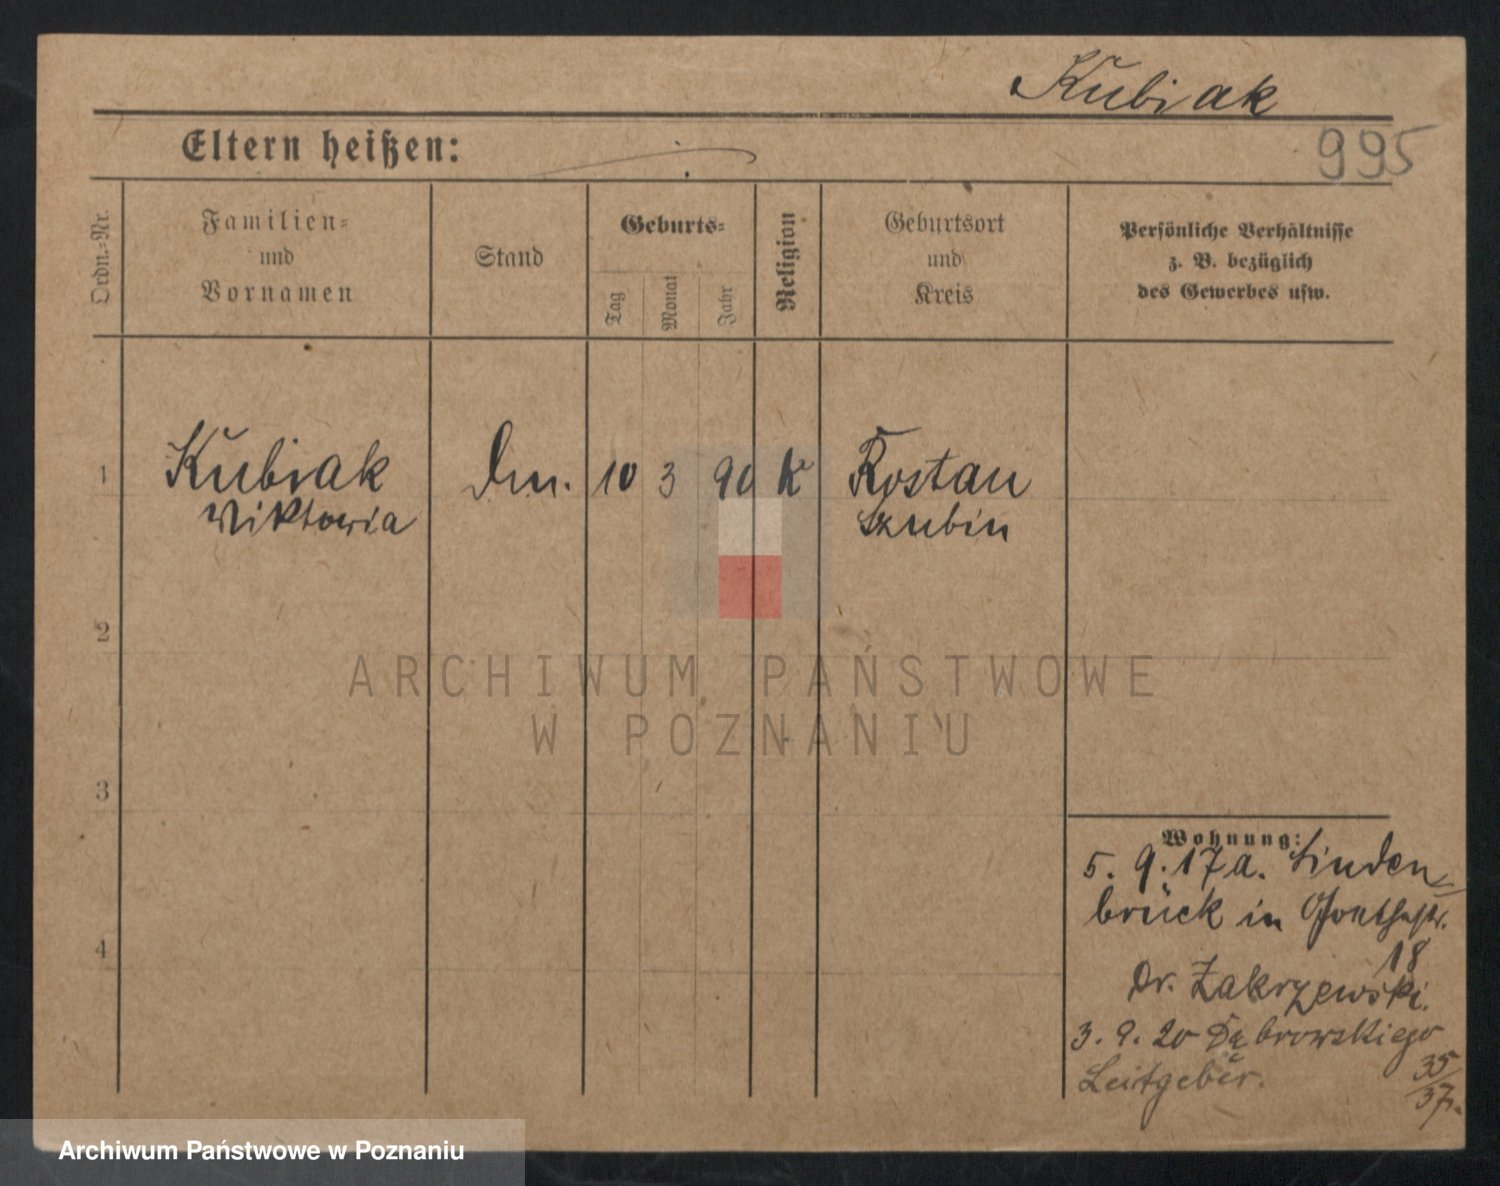 Kubiak
995
Eltern heißen:
Ordn.-Nr.
Familien-
und
Vornamen
Stand
Geburts-
Tag
Monat
Jahr
Religion
Geburtsort
und
Kreis
Persönliche Verhältnisse
z. B. bezüglich
des Gewerbes usw.
1 Kubiak 10 3 90 K Rostau
Wiktoria Szubin
2
3
4
ARCHIWUM PAŃSTWOWE
W POZNANIU
Wohnung:
5. 9. 17 a. Linden-
brück in
18
Dr. Zakrzewski.
3. 9. 20 Dąbrowskiego
35/37.
Leitgeber.
Archiwum Państwowe w Poznaniu